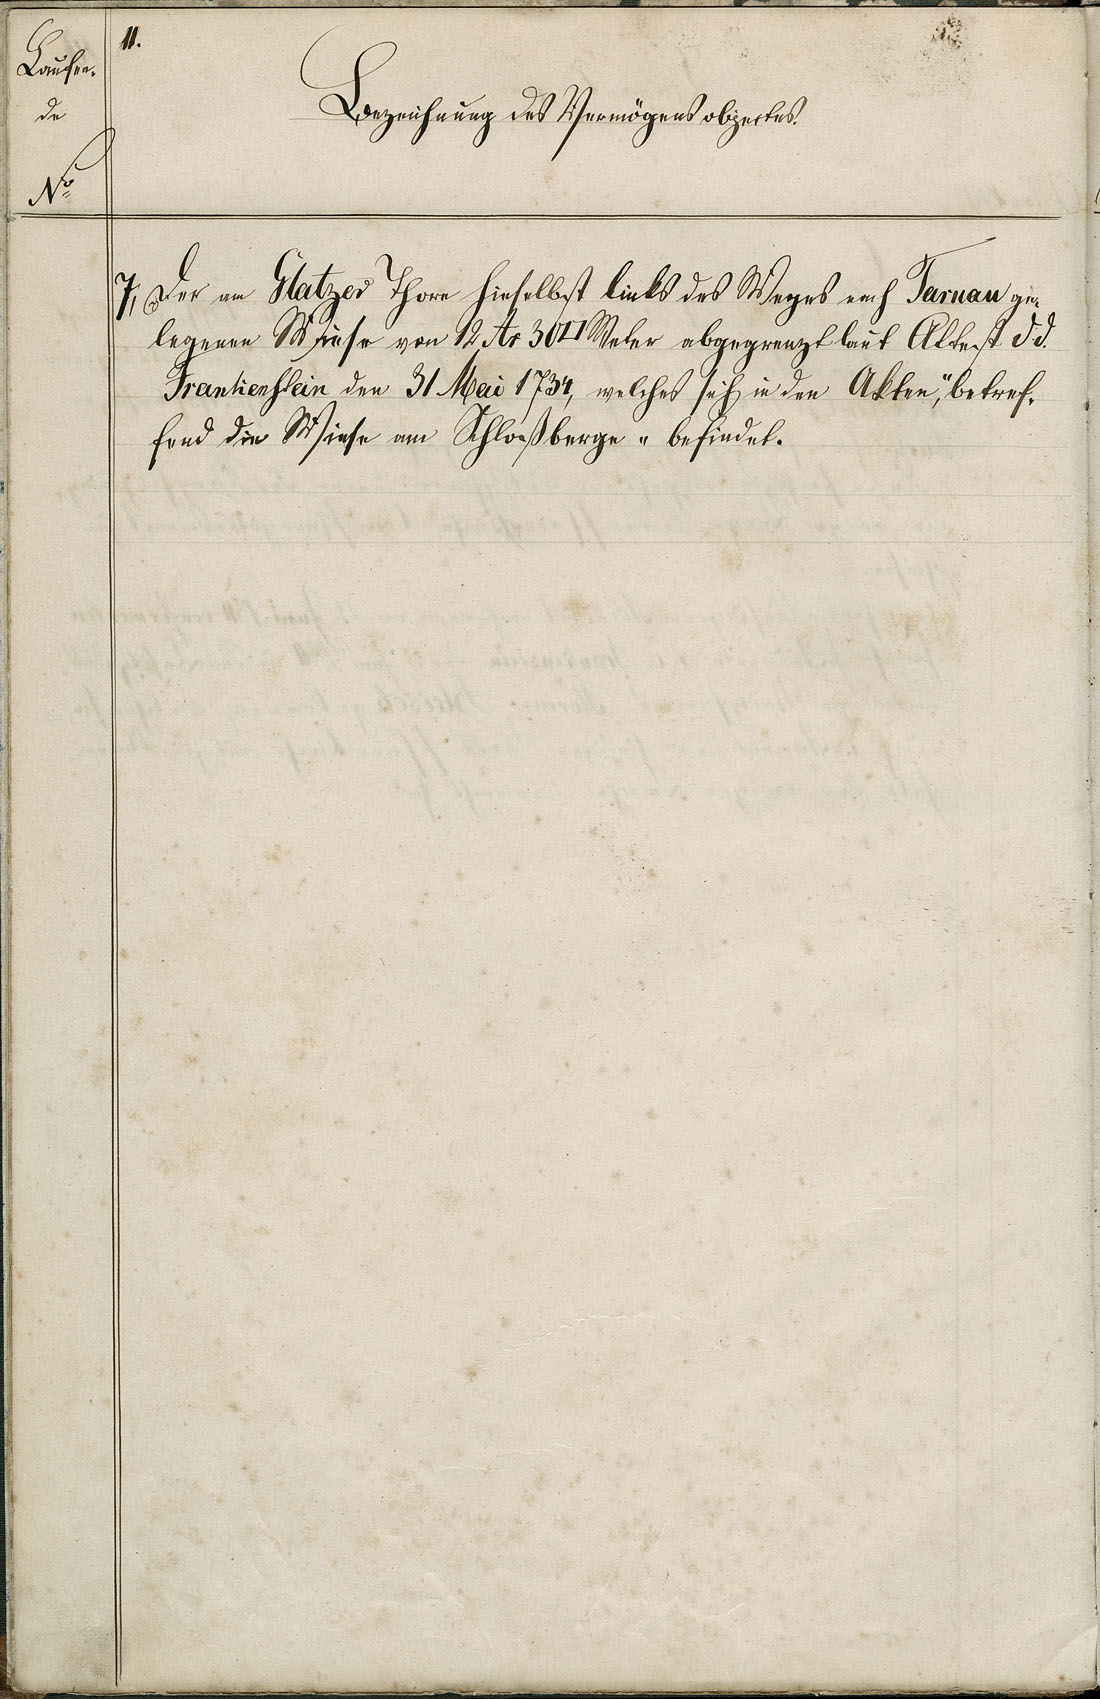 11.
Laufen-
de
No
Bezeichnung des Vermögensobjectes.
7, Der am Glatzer Thore hieselbst links des Weges nach Tarnau ge-
legenen Wiese von 12 Ar 30 □ Meter abgegrenzt laut Attest d. d.
Frankenstein den 31 Mai 1734, welches sich in den Akten, "betref-
fend die Wiese am Schloßberge" befindet.